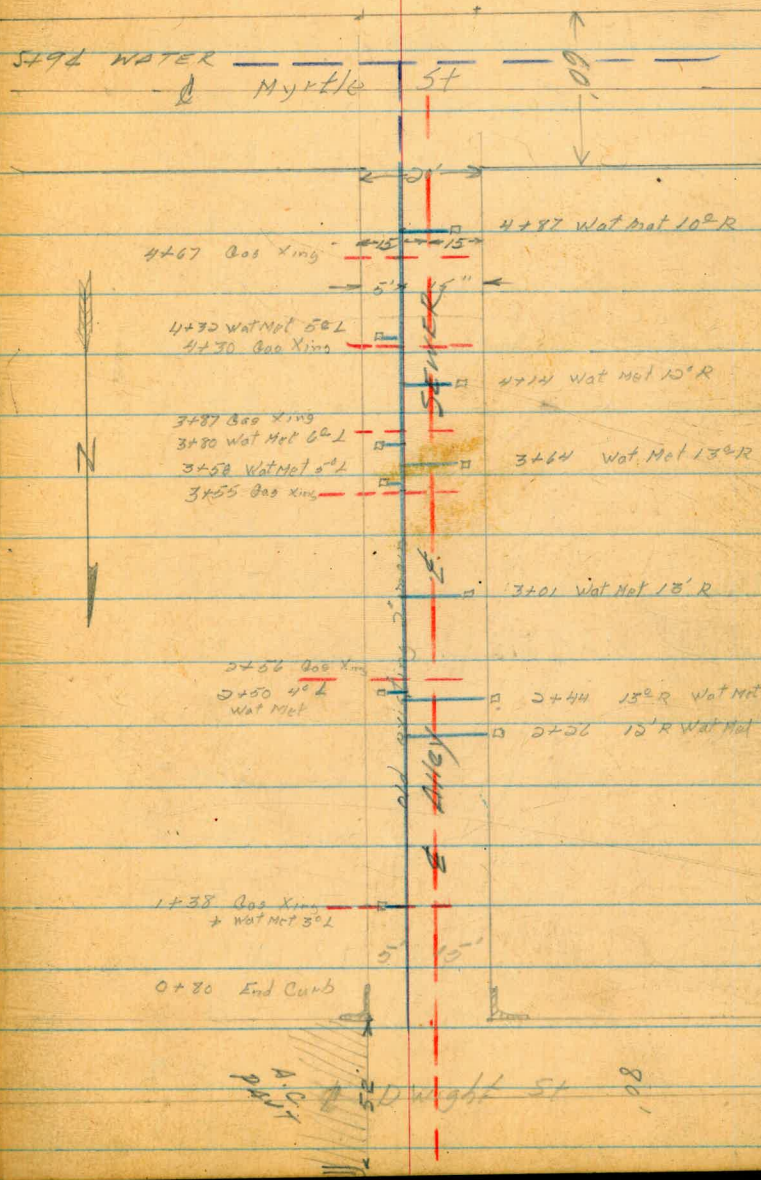 5+92 WATER
℄ Myrtle St
60'
4+87 Wat Met 10° R
15 15
4+67 Gas Xing
5'
4+32 Wat Met 5° L
4+30 Gas Xing
SEWER
4+14 Wat Met 12' R
3+87 Gas Xing
3+80 Wat Met 6° L
3+64 Wat Met 13° R
3+58 Wat Met 5° L
3+55 Gas Xing
N
3+01 Wat Met 13' R
old existing 2" main
2+56 Gas Xing
2+50 4° L
Wat Met
2+44 15° R Wat Met
2+26 12' R Wat Met
℄ Alley ℄
1+38 Gas Xing
+ Wat Met 3° L
5' 15'
0+80 End Curb
A.C.
PAVT
52'
℄ Dwight St
80'